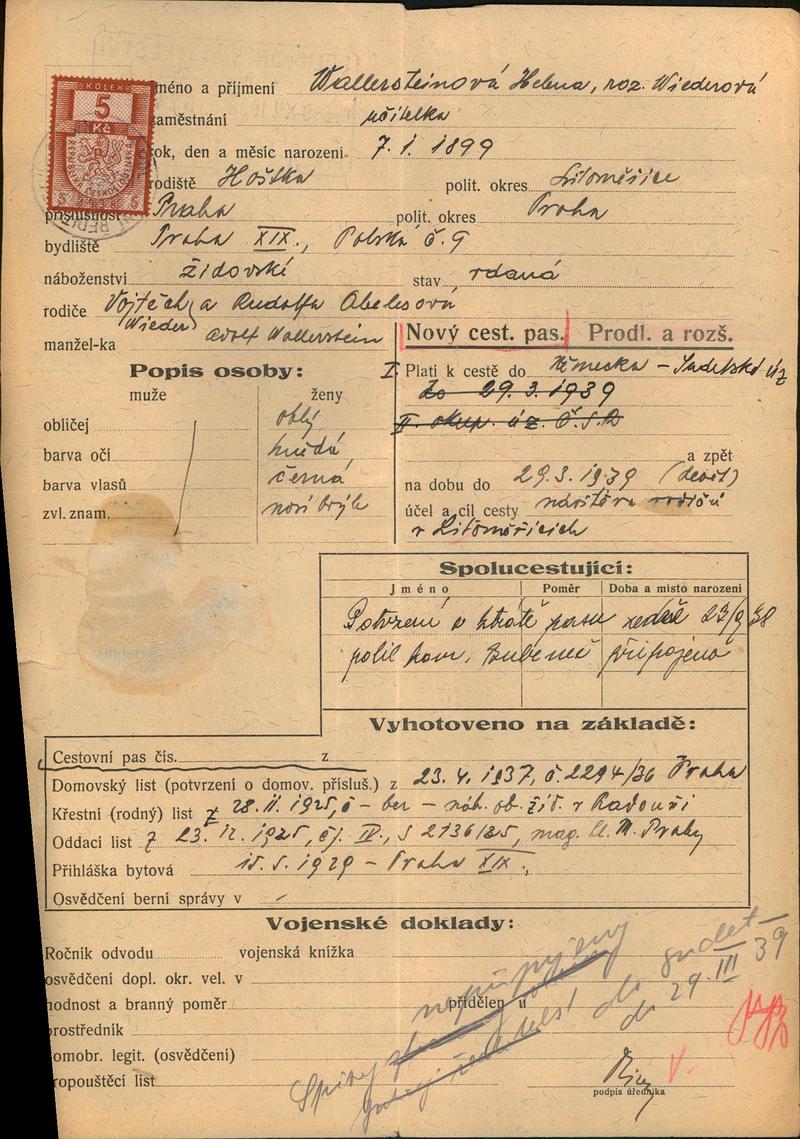 KOLEK
5
Kč
REPUBLIKA ČESKOSLOVENSKÁ
méno a příjmení Wallersteinová Helena, roz. Wiederová
zaměstnání učitelka
rok, den a měsíc narození 7. 1. 1899
rodiště Hoštka polit. okres Litoměřice
příslušnost Praha polit. okres Praha
bydliště Praha XIX., Polská č. 9
náboženství židovské stav vdaná
rodiče Vojtěch a Rudolfa Abelesová
(Wieder)
manžel-ka Adolf Wallerstein
Nový cest. pas. Prodl. a rozš.
Popis osoby:
muže ženy
obličej oblý
barva očí hnědá
barva vlasů černá
zvl. znam. nosí brýle
I. Platí k cestě do Německa - Sudetské úz
do 29. 3. 1939
II. okup. úz. Č.S.R
a zpět
na dobu do 29. 3. 1939
účel a cíl cesty návštěva rodičů
v Litoměřicích
Spolucestující:
Jméno Poměr Doba a místo narození
Potvrzení o ztrátě pasu ze dne 23/9 38
polic kom. Bubeneč připojeno
Vyhotoveno na základě:
Cestovní pas čís. z
Domovský list (potvrzení o domov. přísluš.) z 23. 4. 1937, č. 2294/36 Praha
Křestní (rodný) list z 28. 11. 1925, č - ber - náb. ob. žid. v Radouni
Oddací list z 23. 12. 1925, čj. IV., S 2136/25, mag. hl. M. Prahy
Přihláška bytová 15. 5. 1929 - Praha XIX.,
Osvědčení berní správy v
Vojenské doklady:
Ročník odvodu vojenská knížka
osvědčení dopl. okr. vel. v
hodnost a branný poměr přidělen u
prostředník
domobr. legit. (osvědčení)
propouštěcí list
nepřipojeny
Spisy
do sudet
do 29. III 39
podpis úředníka